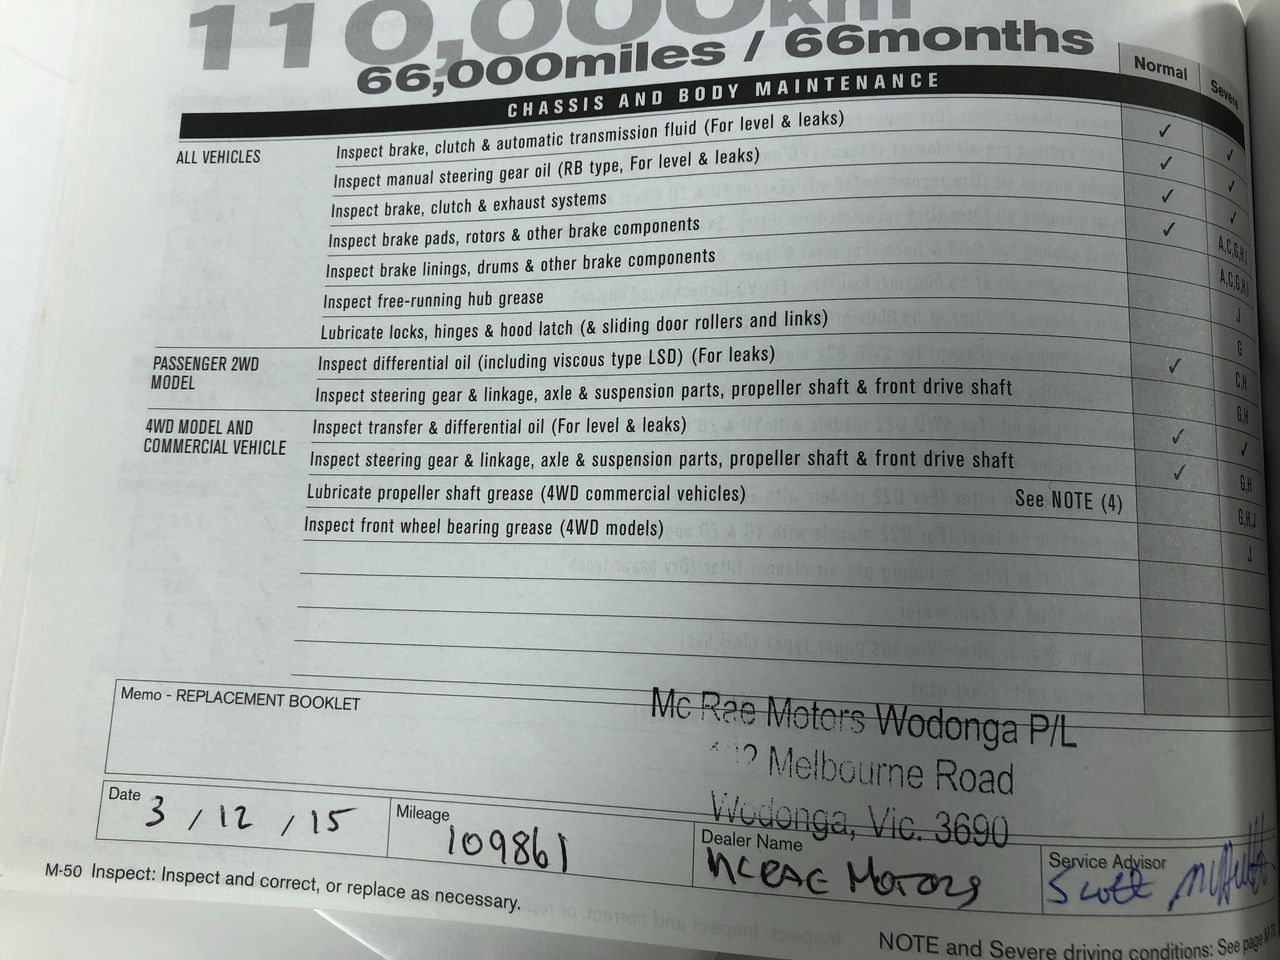 110,000km
66,000miles / 66months
Normal Severe
CHASSIS AND BODY MAINTENANCE
ALL VEHICLES Inspect brake, clutch & automatic transmission fluid (For level & leaks) ✓ ✓
Inspect manual steering gear oil (RB type, For level & leaks) ✓ ✓
Inspect brake, clutch & exhaust systems ✓ ✓
Inspect brake pads, rotors & other brake components ✓ A,C,G,H,J
Inspect brake linings, drums & other brake components A,C,G,H,J
Inspect free-running hub grease J
Lubricate locks, hinges & hood latch (& sliding door rollers and links) G
PASSENGER 2WD MODEL Inspect differential oil (including viscous type LSD) (For leaks) ✓ C,H
Inspect steering gear & linkage, axle & suspension parts, propeller shaft & front drive shaft G,H
4WD MODEL AND COMMERCIAL VEHICLE Inspect transfer & differential oil (For level & leaks) ✓ ✓
Inspect steering gear & linkage, axle & suspension parts, propeller shaft & front drive shaft ✓ G,H
Lubricate propeller shaft grease (4WD commercial vehicles) See NOTE (4) G,H,J
Inspect front wheel bearing grease (4WD models) J
Memo - REPLACEMENT BOOKLET
Mc Rae Motors Wodonga P/L
Melbourne Road
Wodonga, Vic. 3690
Date 3 / 12 / 15
Mileage 109861
Dealer Name McRAE Motors
Service Advisor Scott
M-50 Inspect: Inspect and correct, or replace as necessary.
NOTE and Severe driving conditions: See page